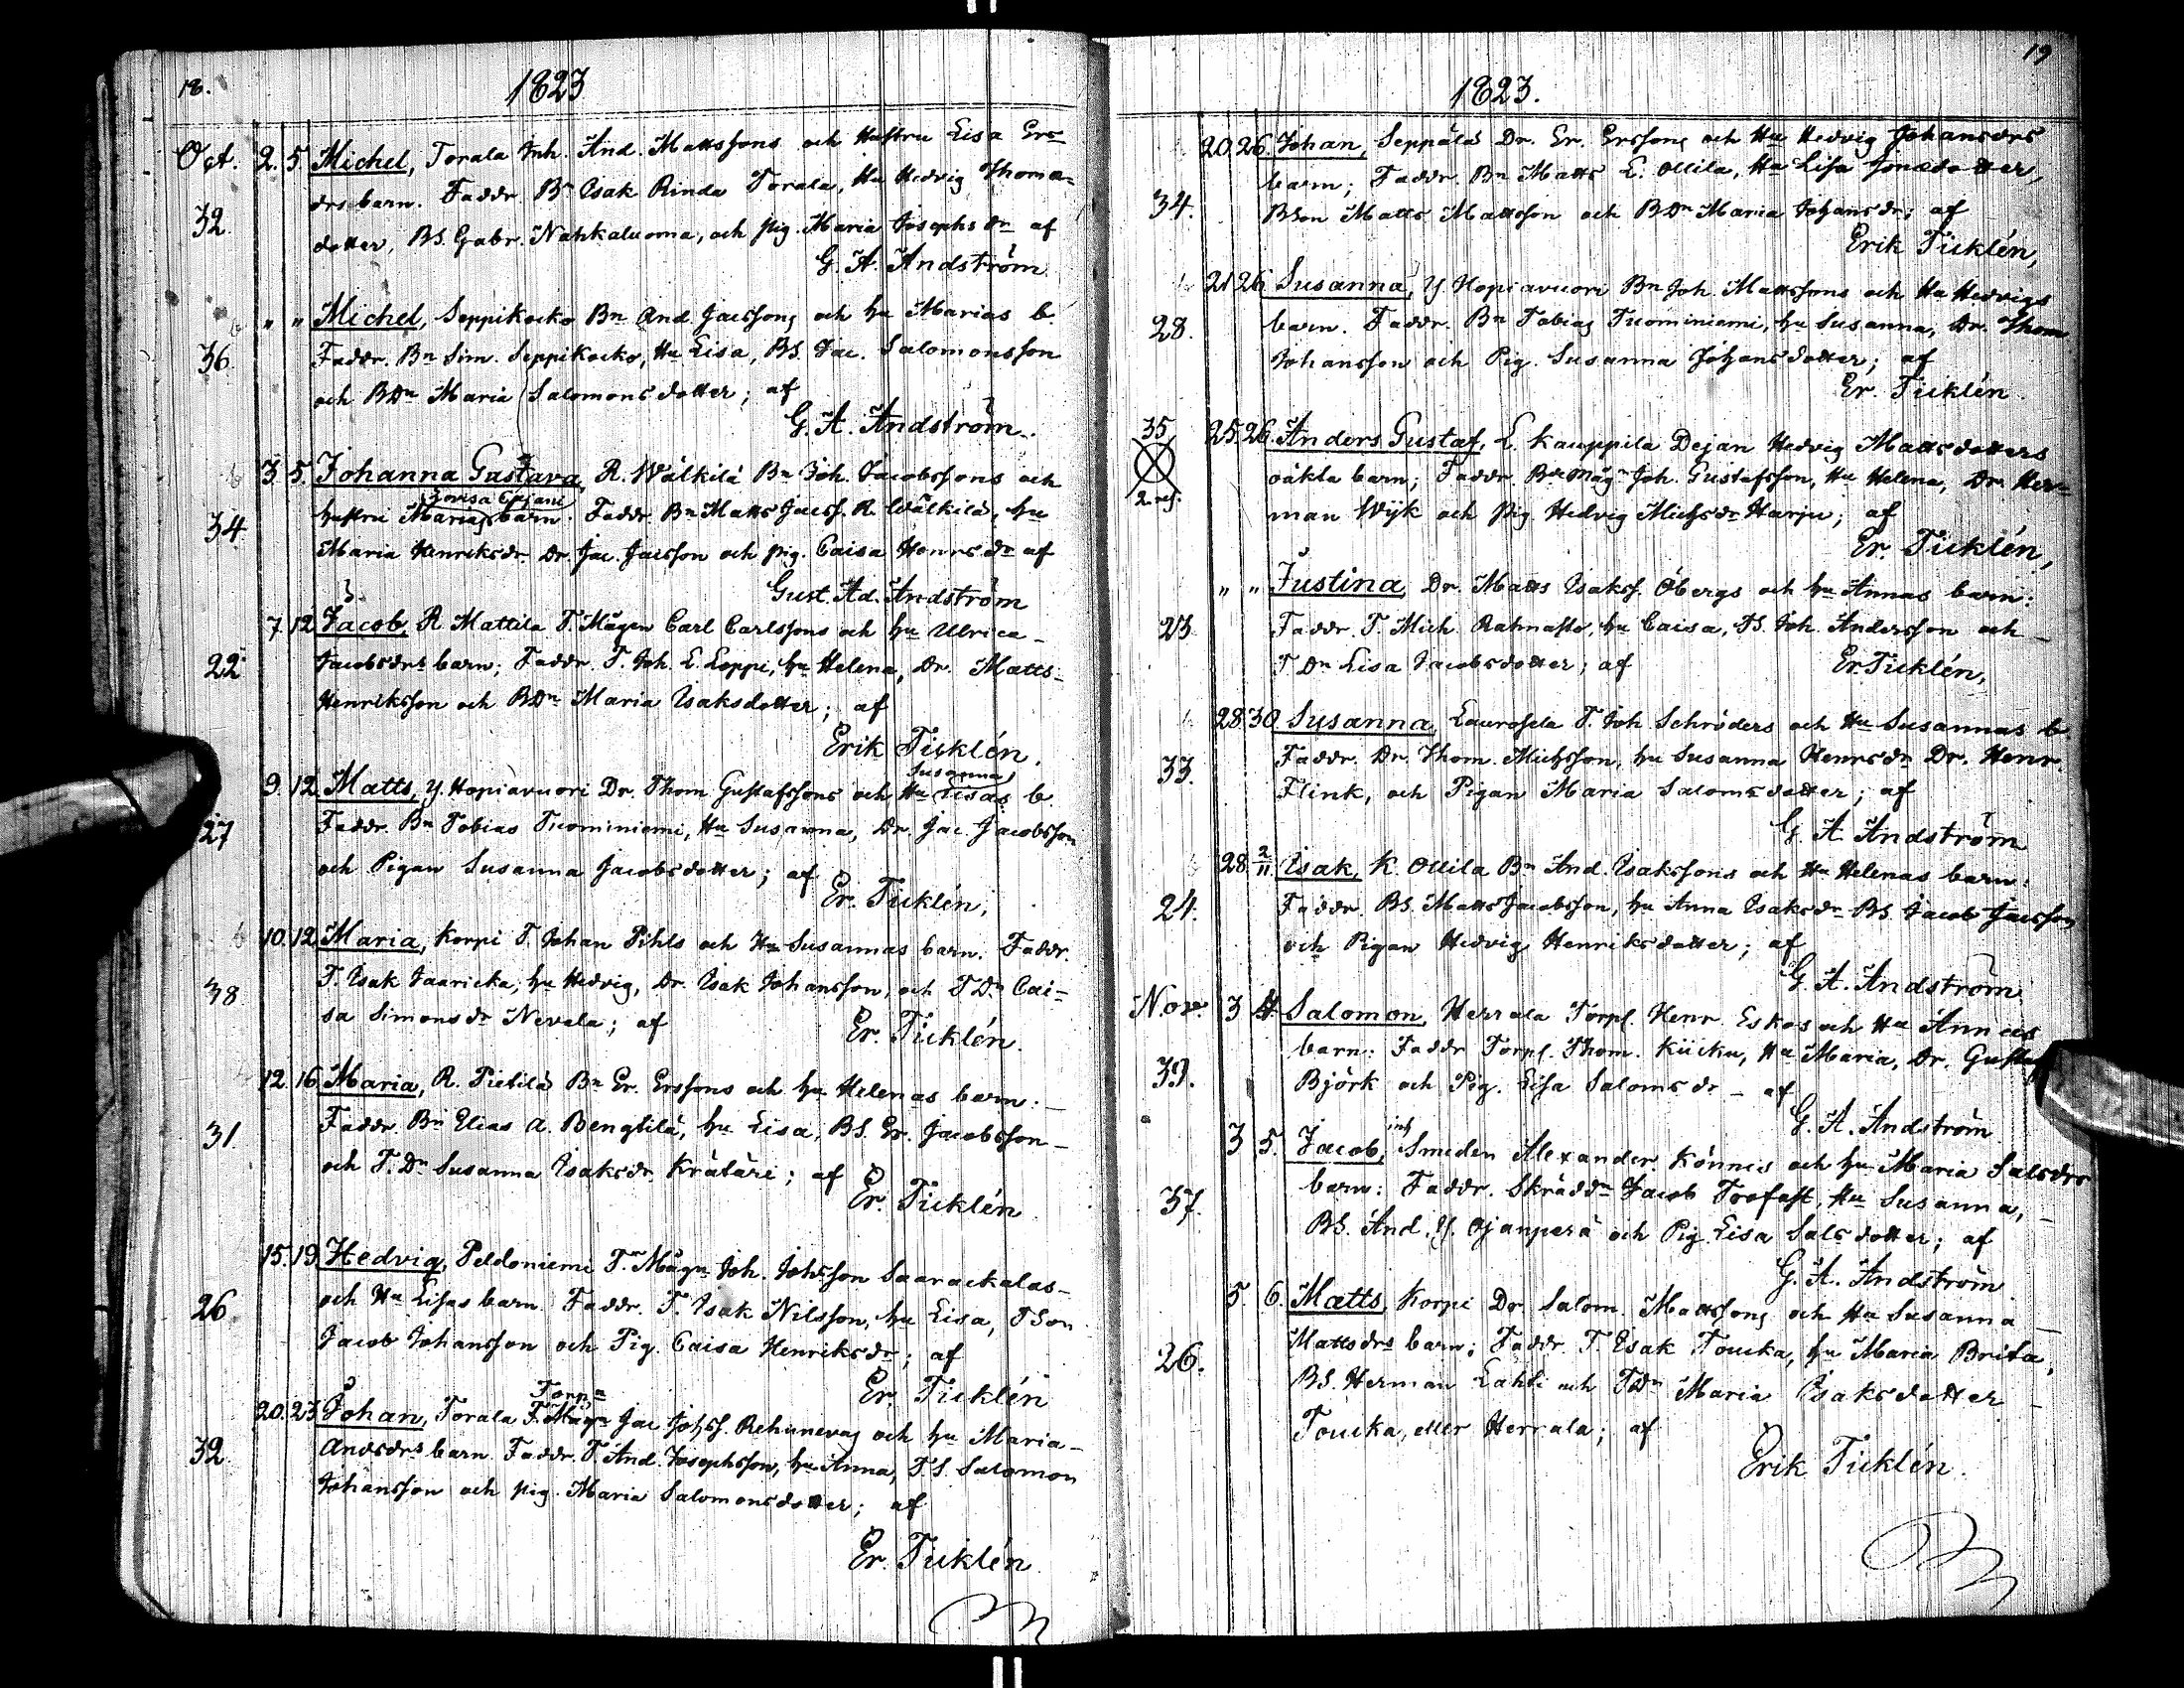 18.
1823
Oct. 2. 5. Michel, Torala Inh. And. Mattssons och Hustru Lisa Ers=
drs barn. Faddr. Bn Isak Rinda Torala, Hu Hedvig Thomas=
32. dotter, BS. Gabr. Nahkaluoma, och pig. Maria Josephsdr af
G. A. Andström
" " Michel, Seppikocko Bn And. Jacssons och hu Marias b.
36. Faddr. Bn Sim. Seppikocko, Hu Lisa, BS. Jac. Salomonsson
och BDn Maria Salomonsdotter; af
G. A. Andström.
3. 5. Johanna Gustava, R. Wälkilä Bn Joh. Jacobssons och
Lovisa Cajani
34. hustru Marias barn. Faddr. Bn Matts Jacss. R. Wälkilä, hu
Maria Henriksdr. Dr. Jac. Jacsson och pig. Caisa Henrsdr af
Gust. Ad. Andström
7. 12. Jacob, R. Mattila T. Mågen Carl Carlssons och hu Ulrica
22. Jacobsdrs barn; Faddr. T. Joh. L. Loppi, hu Helena, Dr. Matts
Henriksson och BDn Maria Isaksdotter; af
Erik Ticklén.
Susannas
9. 12. Matts, Y. Hopiavuori Dr. Thom. Gustafssons och Hu Lisas b.
27 Faddr. Bn Tobias Tuominiemi, Hu Susanna, Dr. Jac. Jacobsson
och Pigan Susanna Jacobsdotter; af
Er. Ticklén.
10. 12. Maria, Korpi T. Johan Pihls och Hu Susannas barn. Faddr.
38. T. Isak Jaaricka, hu Hedvig, Dr. Isak Johansson, och TDn Cai=
sa Simonsdr Nevala; af Er. Ticklén.
12. 16. Maria, R. Pietilä Bn Er. Erssons och hu Helenas barn:
31. Faddr. Bn Elias A. Bengtilä, hu Lisa, BS. Er. Jacobsson
och T. Dn Susanna Isaksdr. Krätäri; af
Er. Ticklén
15. 19. Hedvig, Peldoniemi T. Mågn Joh. Johsson Saarackalas
26. och Hu Lisas barn. Faddr. T. Isak Nilsson, hu Lisa, TSon
Jacob Johansson och Pig. Caisa Henriksdr; af
Er. Ticklén
Torpn
20. 23. Johan, Torala T. Mågn Jac. Johss. Rehunevas och hu Maria
32. Andsdrs barn. Faddr. T. And. Josephsson, hu Anna, TS. Salomon
Johansson och pig. Maria Salomonsdotter; af
Er. Ticklén
19
1823.
20. 26. Johan, Seppäläs Dr. Er. Erssons och Hu Hedvig Johansdrs
barn; Faddr. Bn Matts L. Ollila, Hu Lisa Jonædotter,
34. BSon Matts Mattsson och BDn Maria Johansdr; af
Erik Ticklén,
21 26 Susanna, Y. Hopiavuori Bn Joh. Mattssons och Hu Hedvigs
28. barn. Faddr. Bn Tobias Tuominiemi, hu Susanna, Dr. Thom
Johansson och Pig. Susanna Johansdotter; af
Er. Ticklén.
35 25. 26. Anders Gustaf, L. Kauppila Dejan Hedvig Mattsdotters
oäkta barn; Faddr. Bn Mågn Joh. Gustafsson, Hu Helena, Dr. Her=
2. res. man Wijk och pig. Hedvig Michsdr Harju; af
Er. Ticklén,
" " Justina, Dr. Matts Isakss. Öbergs och hu Annas barn:
23. Faddr. T. Mich. Rahnasto, hu Caisa, TS. Joh. Andersson och
TDn Lisa Jacobsdotter; af Er. Ticklén,
28. 30. Susanna, Laurosela T. Joh Schröders och Hu Susannas b.
33. Faddr. Dr. Thom. Michsson, hu Susanna Henrsdr Dr. Henr.
Flink, och Pigan Maria Salomsdotter; af
G. A. Andström
28. 2/11 Isak, K. Ollila Bn And. Isakssons och Hu Helenas barn:
24. Faddr. BS. Matts Jacobsson, hu Anna Isaksdr BS. Jacob Jacsson
och Pigan Hedvig Henriksdotter; af
G. A. Andström
Nov. 3 4. Salomon, Herrala Torpf. Henr. Eskos och Hu Annas
barn: Faddr Torpf. Thom. Kiicku, Hu Maria, Dr. Gustaf
39. Björk och Pig. Lisa Salomsdr af
G. A. Andström
3 5. Jacob, inh Smeden Alexander Könnis och hu Maria Salsdrs
37. barn: Faddr. Skräddn Jacob Trofast, Hu Susanna,
BS. And. Y. Ojanperä och Pig. Lisa Salsdotter; af
G. A. Andström.
5. 6. Matts, Korpi Dr. Salom. Mattssons och Hu Susanna
26. Mattsdrs barn; Faddr. T. Isak Toucka, hu Maria Brita,
BS. Herman Lahti och TDn Maria Isaksdotter
Toucka, eller Herrala; af
Erik Ticklén.